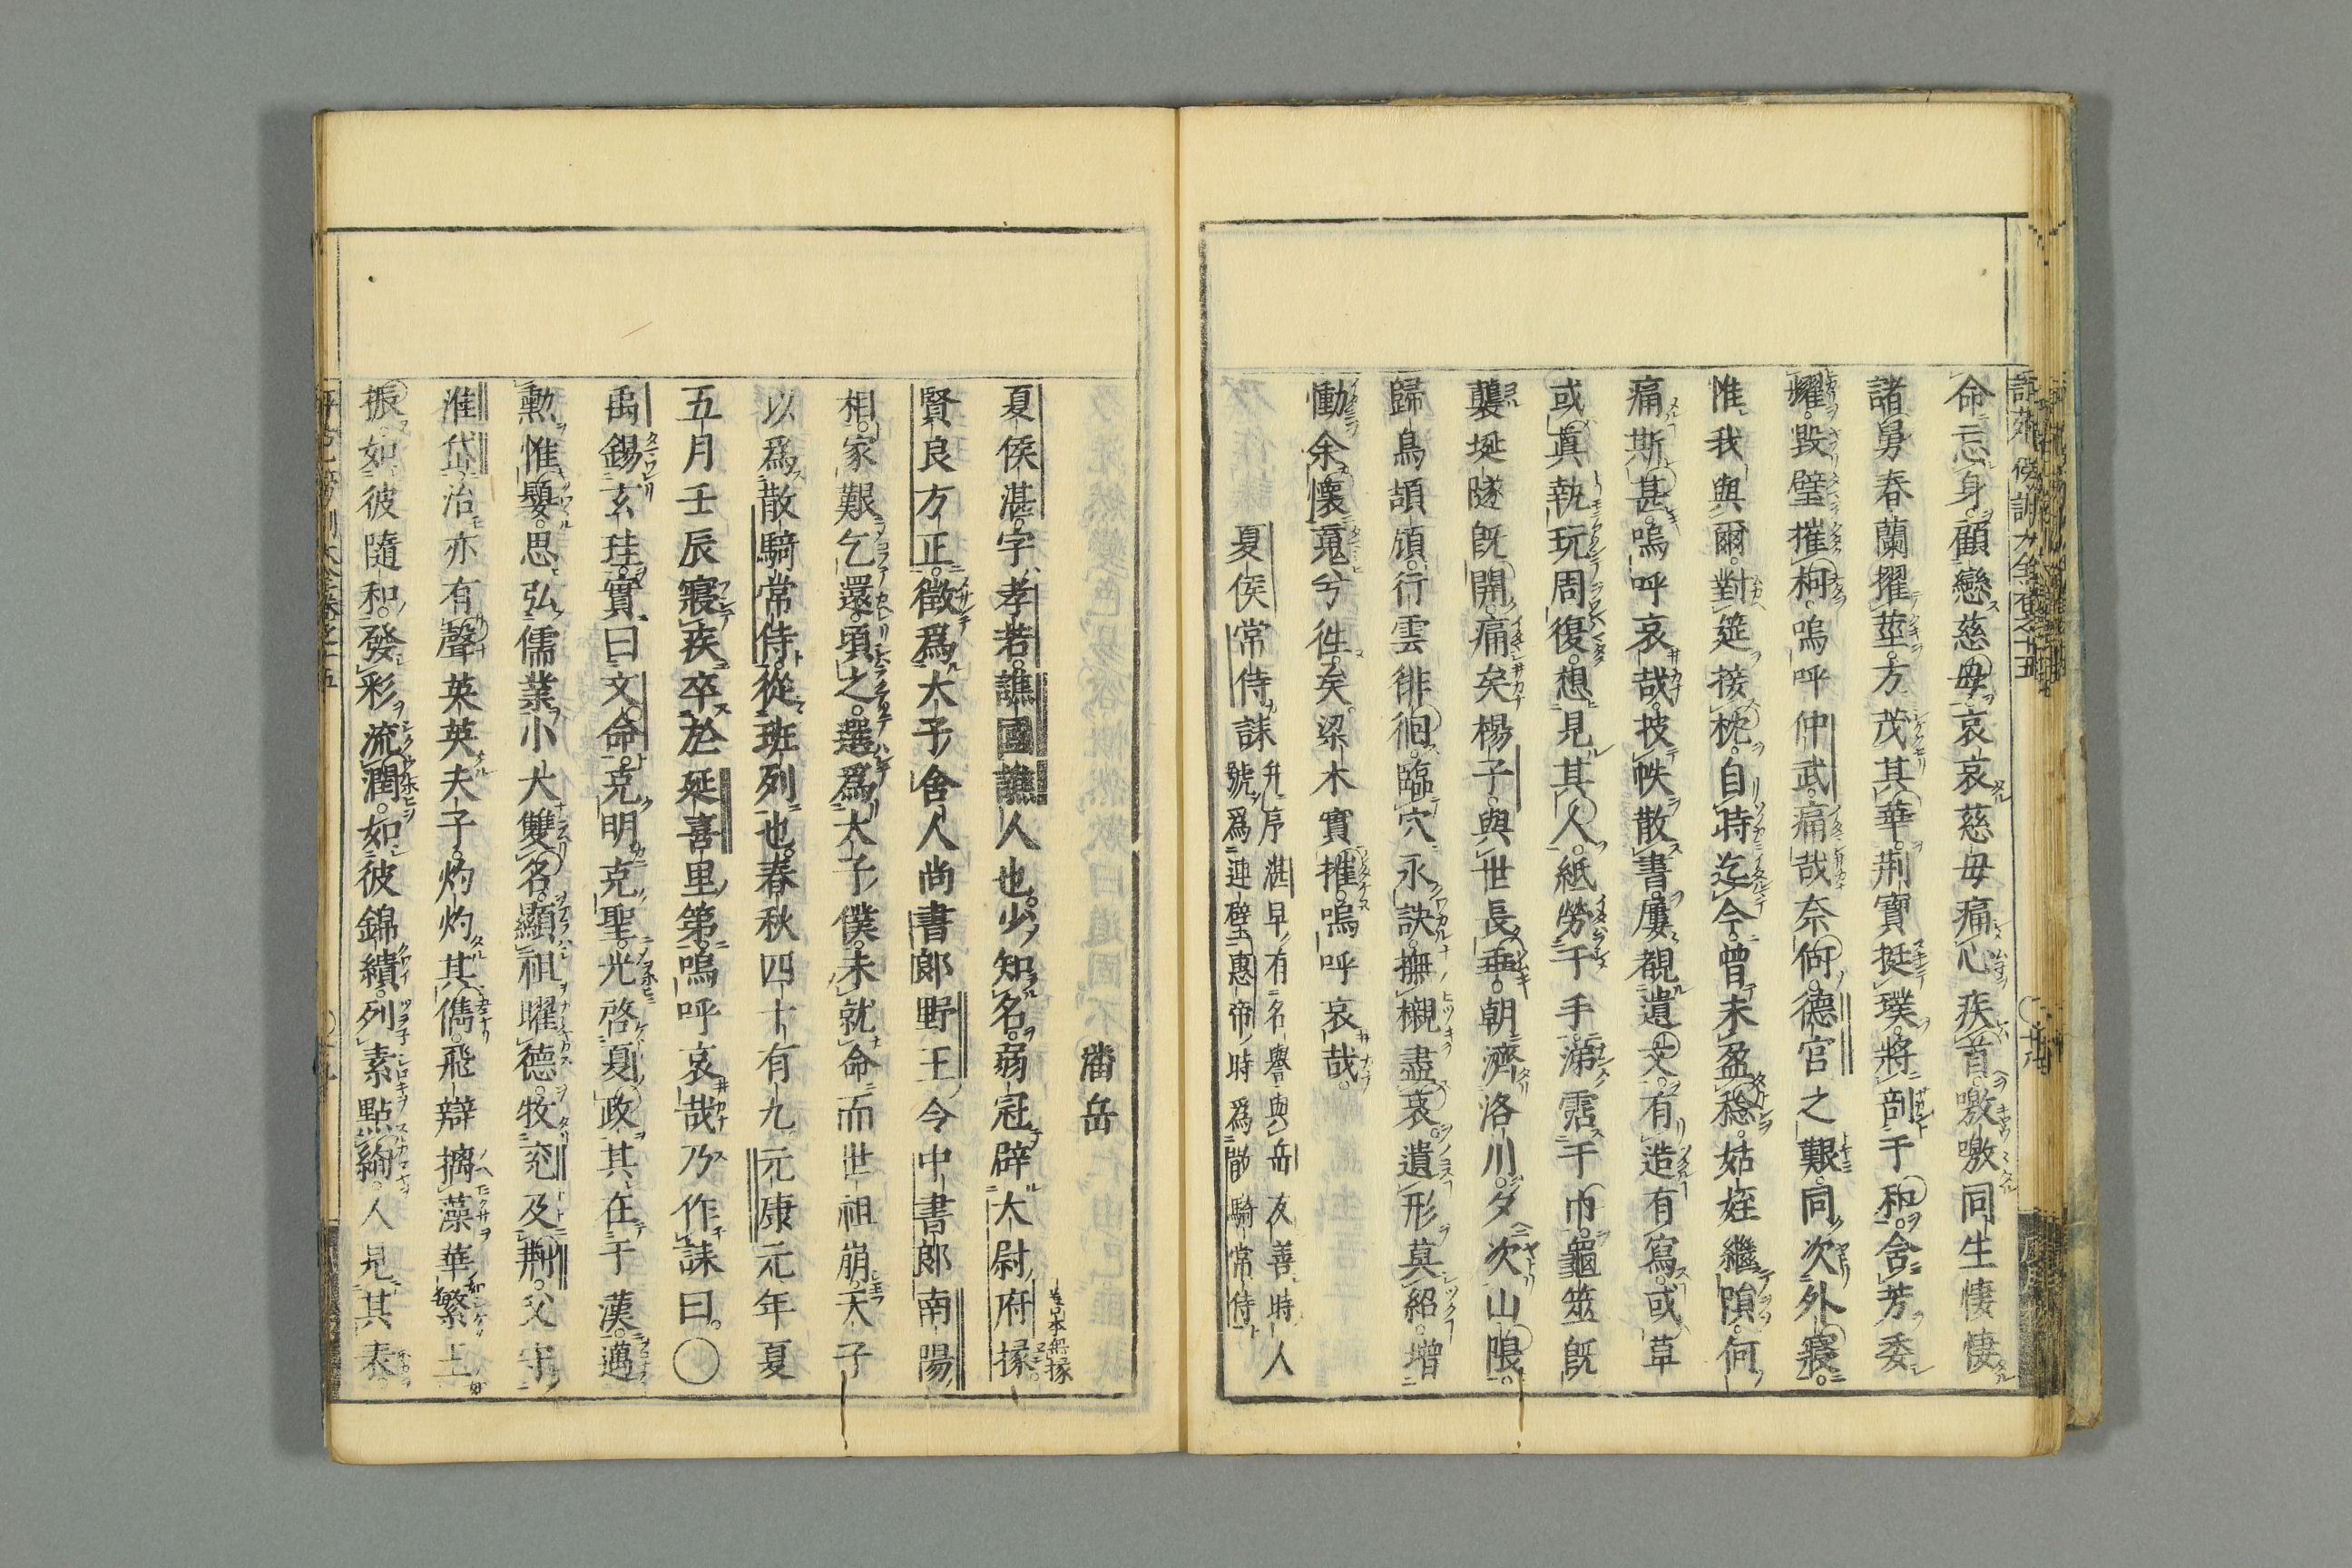 命忘身。顧戀慈母。哀哀慈毋。痛心疾首。噭噭同生。悽悽
諸舅。春蘭擢莖。方茂其華。荆寶挺璞。將剖于和。含芳委
耀。毀璧摧柯。嗚呼仲武。痛哉奈何。德宮之艱。同次外寢。
惟我與爾。對筵接枕。自時迄今。曾未盈稔。姑姪繼隕。何
痛斯甚。嗚呼哀哉。披帙散書。屢覩遺文。有造有寫。或草
或真。執玩周復。想見其人。紙勞于手。涕霑于巾。龜筮旣
襲。埏隧旣開。痛矣楊子。與世長乖。朝濟洛川。夕次山隈。
歸鳥頡頏。行雲徘徊。臨穴永訣。撫櫬盡哀。遺形莫紹。增
慟余懷。寬兮徃矣。梁木實摧。嗚呼哀哉。
夏侯常侍誄 并序 湛早有名譽與岳友善時人
號爲連璧惠帝時爲散騎常侍
潘岳
夏侯湛。字孝若。譙國譙人也。少知名。弱冠辟大尉府掾 善本無掾
賢良方正。徵爲太子舍人尚書郎野王令中書郎南陽
相。家艱乞還。頃之。選爲太子僕。未就命而世祖崩。天子
以爲散騎常侍。從班列也。春秋四十有九。元康元年夏
五月壬辰寢疾卒於延喜里第。嗚呼哀哉乃作誄曰。○
禹錫玄珪。實曰文命。克明克聖。光啓夏政。其在于漢。邁
勲惟嬰。思弘儒業。小大雙名。顯祖曜德。牧兖及荆。父守
淮岱。治亦有聲。英英夫子。灼灼其儁。飛辯摛藻。華繁玉
振。如彼隨和。發彩流潤。如彼錦繢。列素點絢。人見其表。